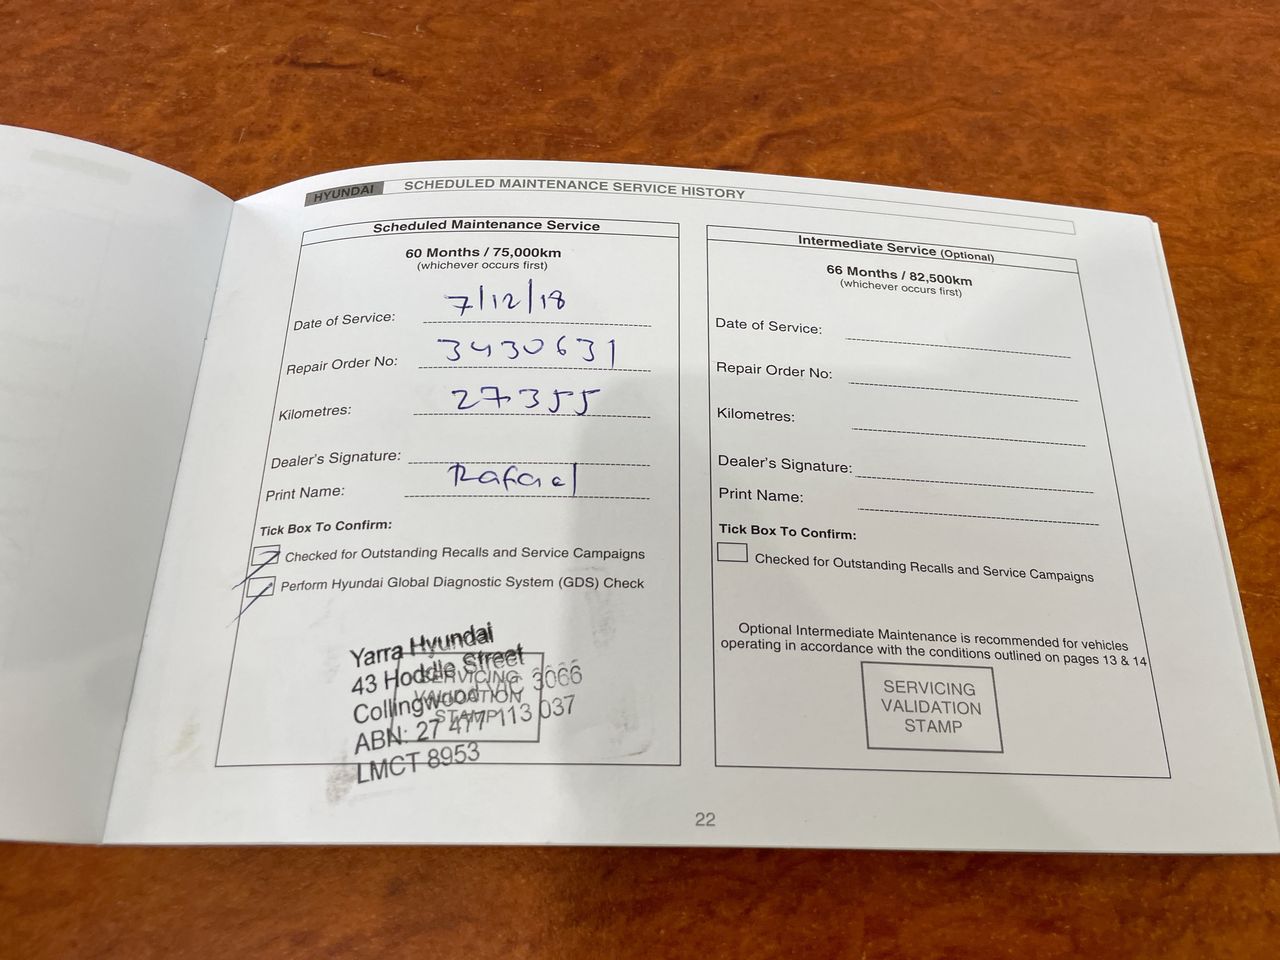 HYUNDAI SCHEDULED MAINTENANCE SERVICE HISTORY
Scheduled Maintenance Service
60 Months / 75,000km
(whichever occurs first)
Date of Service: 7/12/18
Repair Order No: 3430631
Kilometres: 27355
Dealer's Signature:
Print Name: Rafael
Tick Box To Confirm:
Checked for Outstanding Recalls and Service Campaigns
Perform Hyundai Global Diagnostic System (GDS) Check
Yarra Hyundai
43 Hoddle Street
Collingwood VIC 3066
ABN: 27 477 113 037
LMCT 8953
SERVICING
VALIDATION
STAMP
Intermediate Service (Optional)
66 Months / 82,500km
(whichever occurs first)
Date of Service:
Repair Order No:
Kilometres:
Dealer's Signature:
Print Name:
Tick Box To Confirm:
Checked for Outstanding Recalls and Service Campaigns
Optional Intermediate Maintenance is recommended for vehicles
operating in accordance with the conditions outlined on pages 13 & 14
SERVICING
VALIDATION
STAMP
22